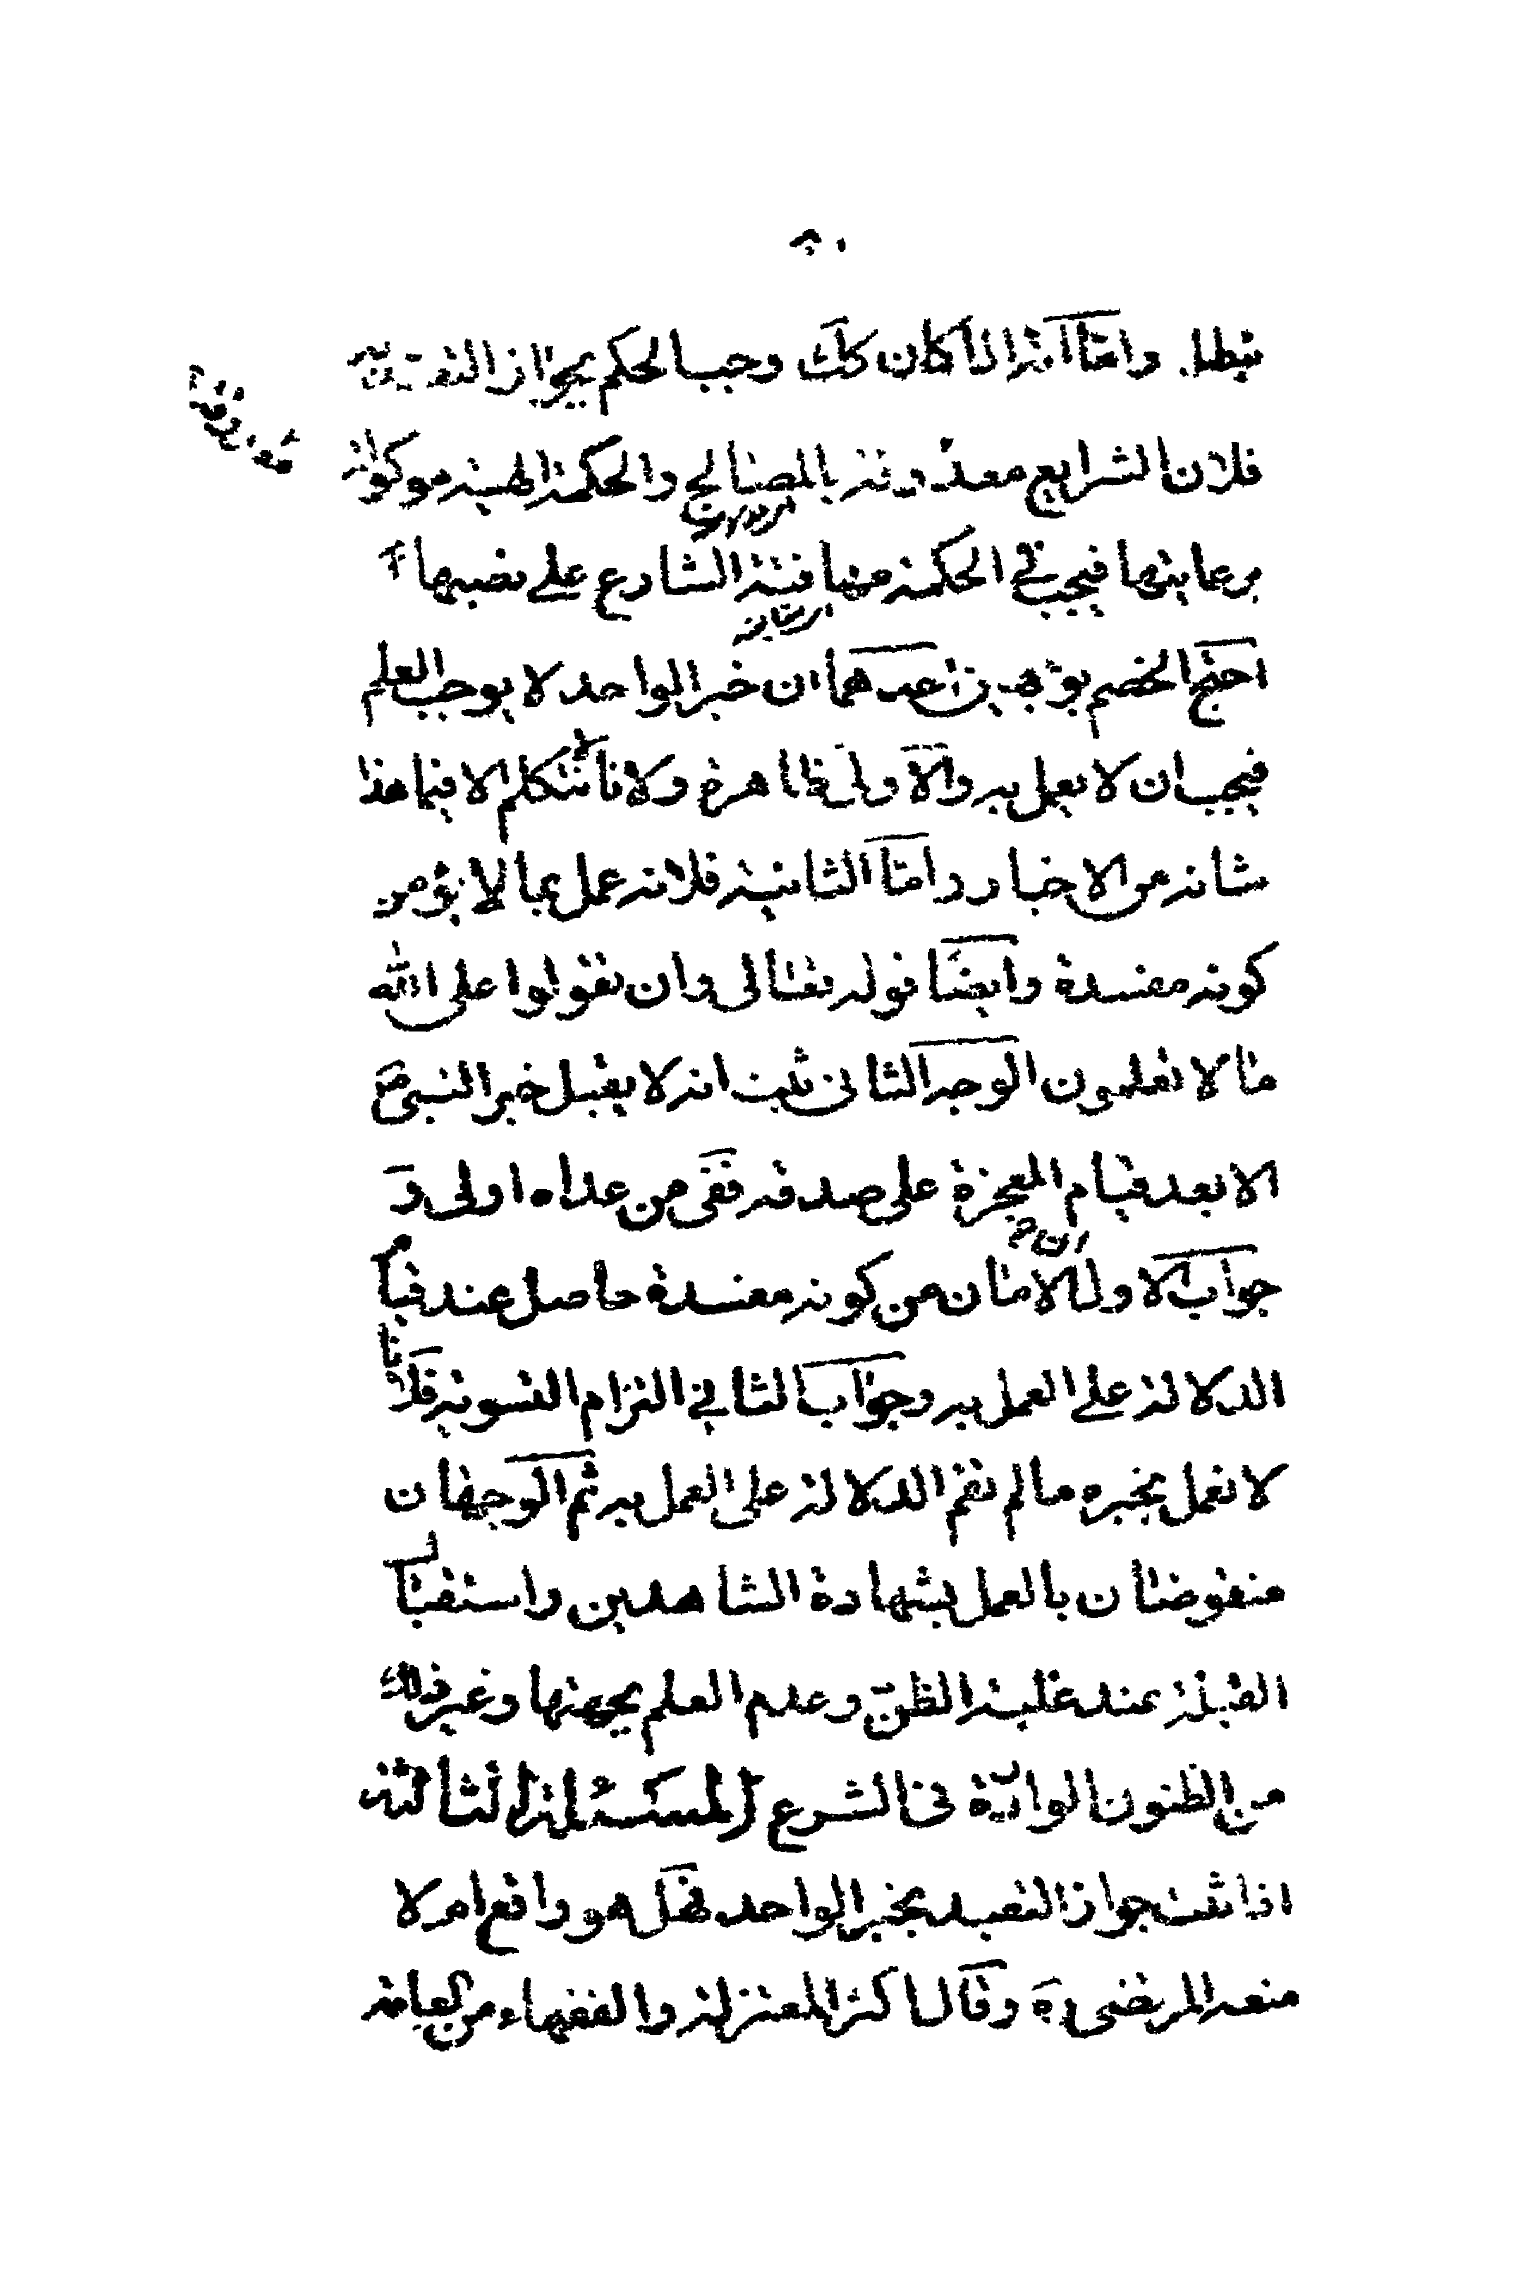 فبطل واما انه اذا كان كك وجب الحكم بجواز التعبد به
فلان الشرايع معذوقة بالمصالح والحكمة الهية موكولة
برعايتها فيجب في الحكمة منها فتنة الشارع على نصبها
احتج الخصم بوجهين احدهما ان خبر الواحد لا يوجب العلم
فيجب ان لا يعمل به والاولى ظاهرة ولانا نتكلم الا فيما هذا
شانه من الاخبار واما الثانية فلانه عمل بما لا يؤمن
كونه مفسدة وايضا قوله تعالى وان تقولوا على الله
ما لا تعلمون الوجه الثاني ثبت انه لا يقبل خبر النبي ص
الا بعد قيام المعجزة على صدقه ففي من عداه اولى و
جواب الاول ان الامان من كونه مفسدة حاصل عند قيام
الدلالة على العمل به وجواب الثاني التزام التسوية فلانا
لا نعمل بخبره ما لم تقم الدلالة على العمل به ثم الوجهان
منقوضان بالعمل بشهادة الشاهدين واستقبال
القبلة عند غلبة الظن وعدم العلم بجهتها وغير ذلك
من الظنون الواردة في الشرع المسئلة الثالثة
اذا ثبت جواز التعبد بخبر الواحد فهل هو واقع ام لا
منعه المرتضى ره وقال اكثر المعتزلة والفقهاء من العامة